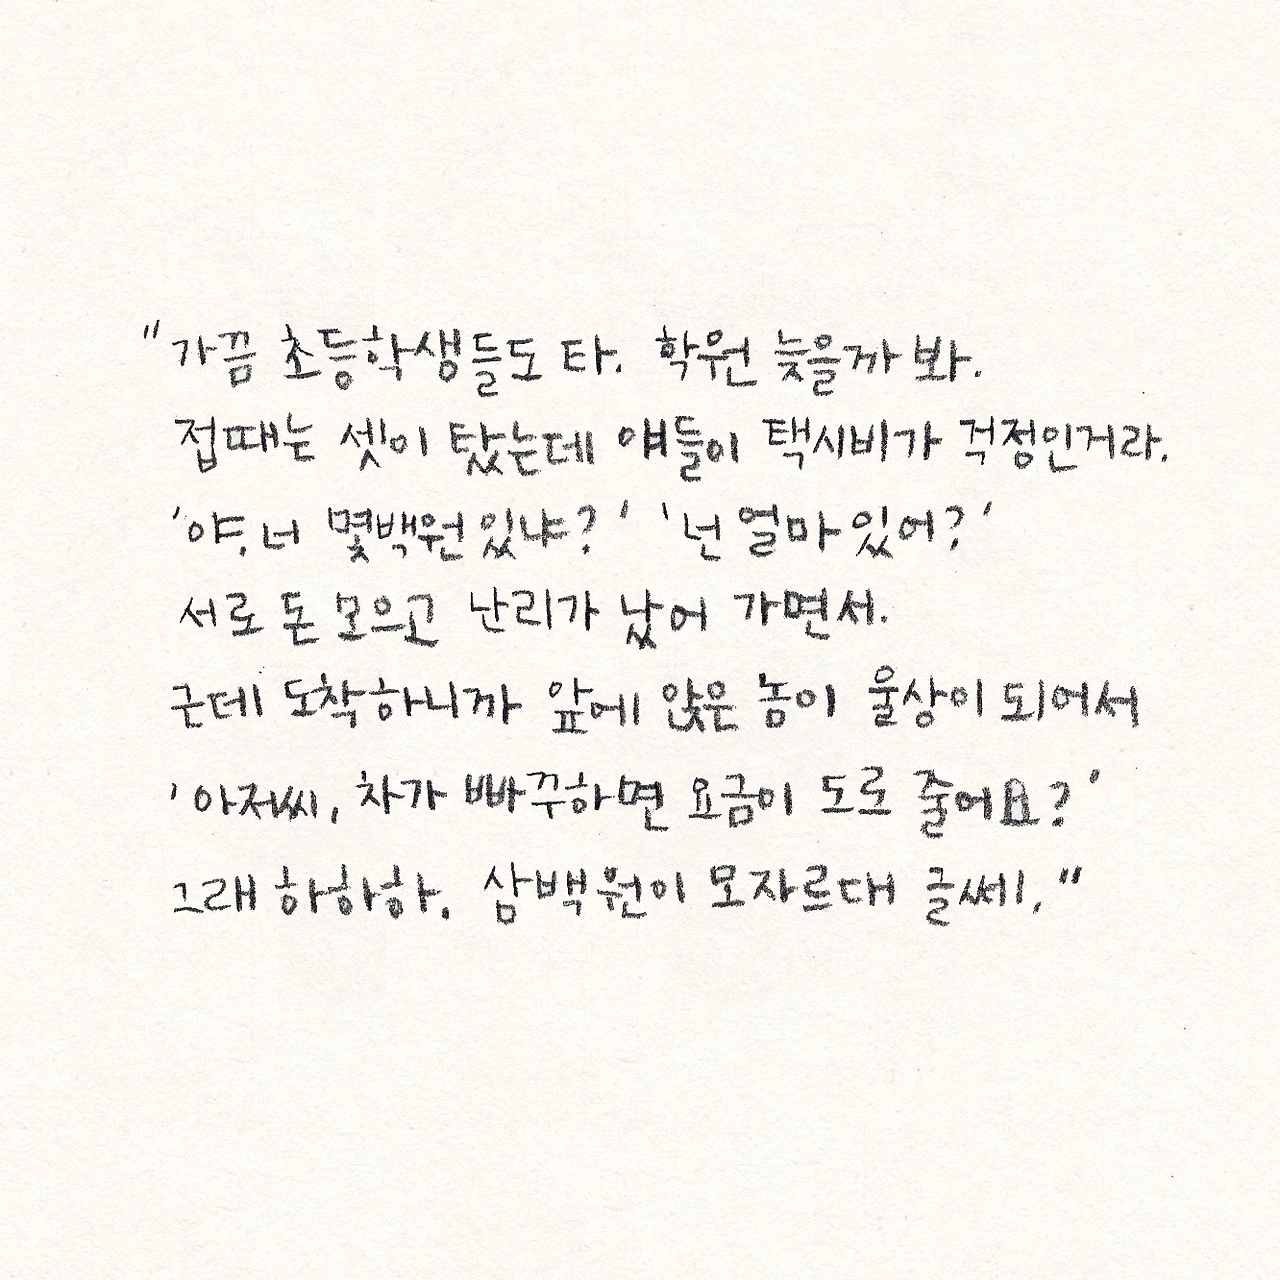 "가끔 초등학생들도 타. 학원 늦을까 봐.
접때는 셋이 탔는데 얘들이 택시비가 걱정인거라.
'야, 너 몇백원 있냐?' '넌 얼마 있어?'
서로 돈 모으고 난리가 났어 가면서.
근데 도착하니까 앞에 앉은 놈이 울상이 되어서
'아저씨, 차가 빠꾸하면 요금이 도로 줄어요?'
그래 하하하. 삼백원이 모자르대 글쎄."